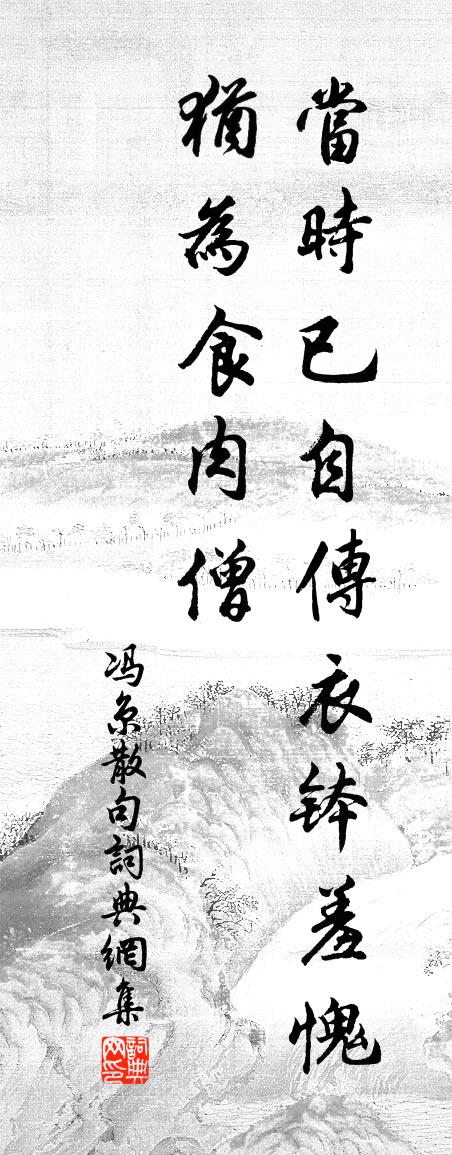 當時已自傳衣鉢羞愧
猶為食肉僧
冯京散句詞典網集
詞典
网印